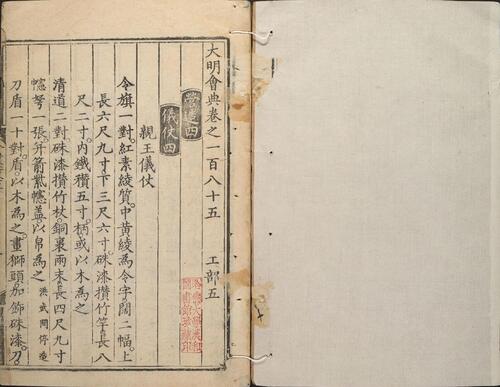 大明會典卷之一百八十五 工部五
營造四
儀仗四
親王儀仗
令旗一對紅素綾質中黃綾爲令字闊二幅上
長六尺九寸下三尺六寸硃漆攢竹竿長八
尺二寸內鐵䥎五寸柄或以木爲之
清道二對硃漆攢竹杖銅裹兩末長四尺九寸
幰弩一張幷箭紫幰蓋以帛爲之 洪武間停造
刀盾一十對盾以木爲之畫獅頭加飾硃漆刀